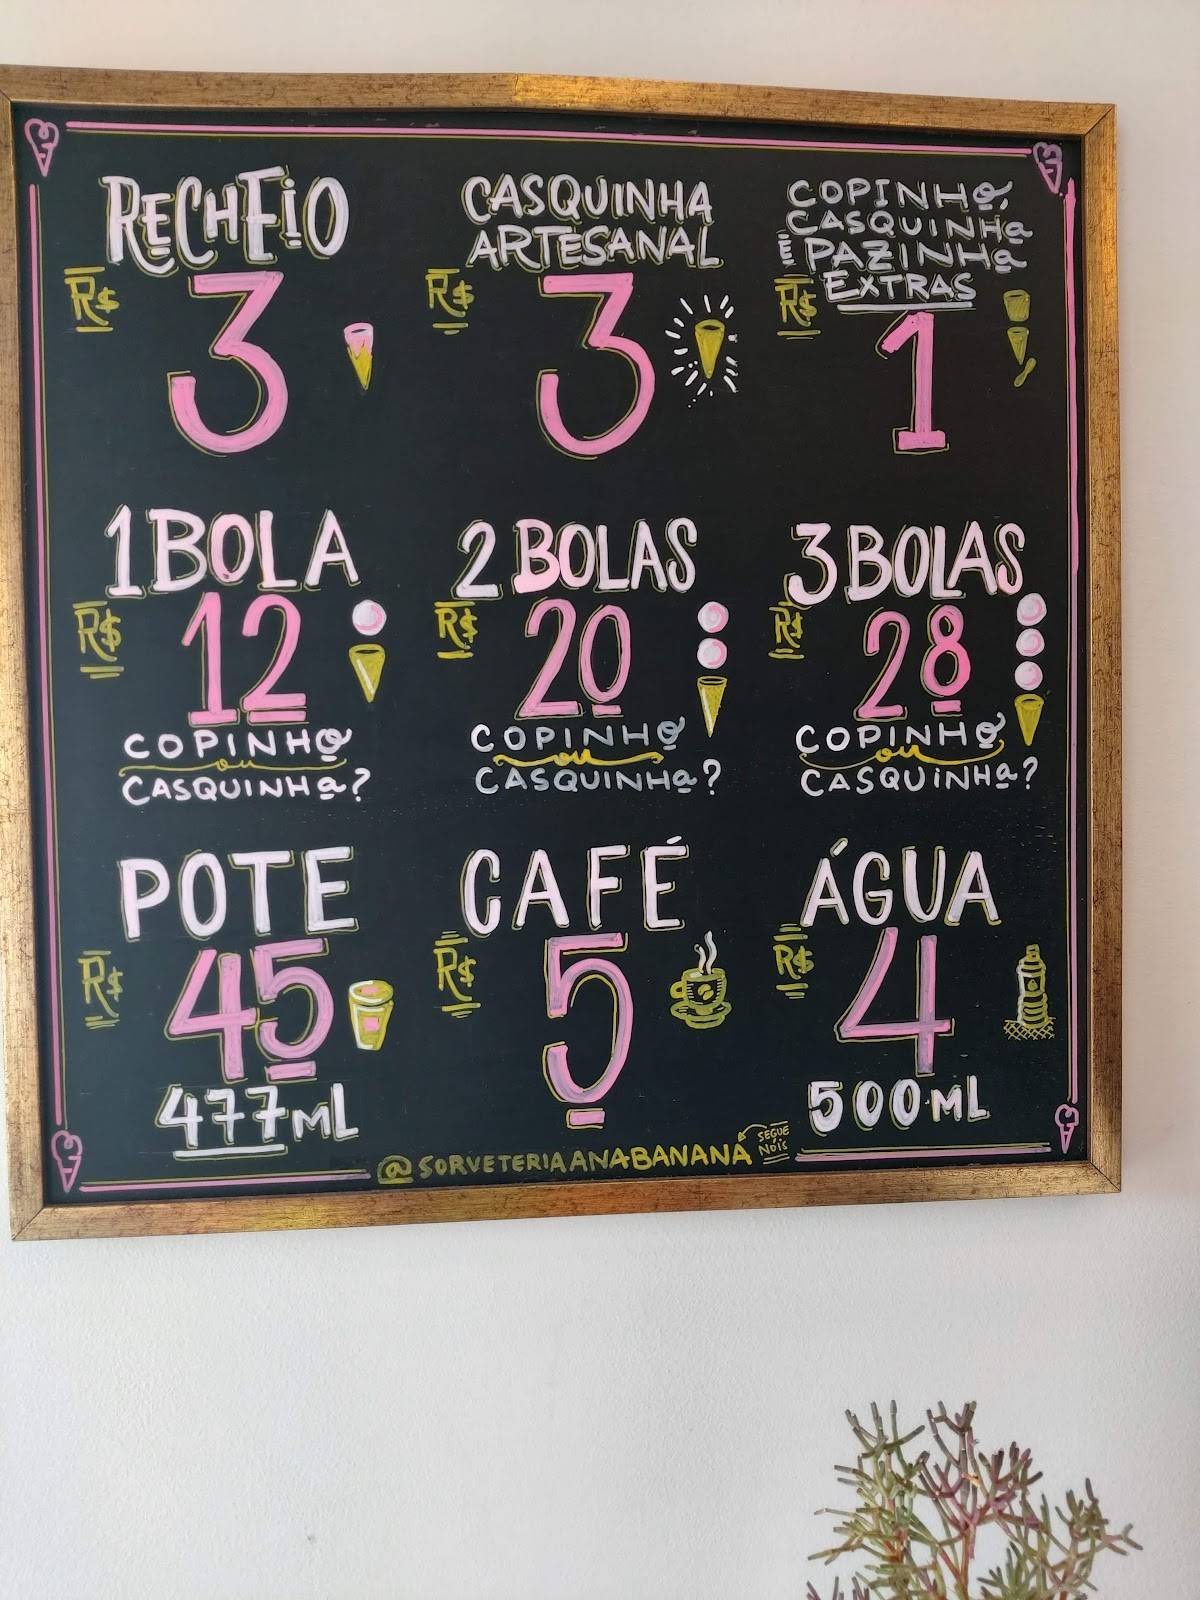 RECHEIO
R$ 3
CASQUINHA
ARTESANAL
R$ 3
COPINHO,
CASQUINHA
E PAZINHA
EXTRAS
R$ 1
1 BOLA
R$ 12
COPINHO
ou
CASQUINHA?
2 BOLAS
R$ 20
COPINHO
ou
CASQUINHA?
3 BOLAS
R$ 28
COPINHO
ou
CASQUINHA?
POTE
R$ 45
477mL
CAFÉ
R$ 5
ÁGUA
R$ 4
500mL
@SORVETERIAANABANANA
SEGUE
NÓIS